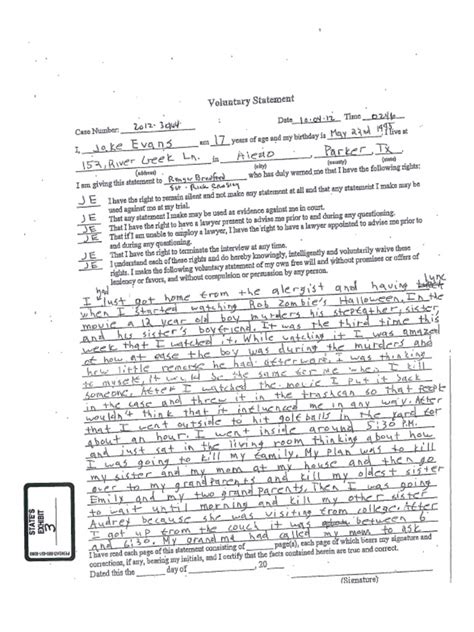 Voluntary Statement
Case Number: 2012-3044 Date 10-04-12 Time 0246
I, Jake Evans am 17 years of age and my birthday is May 22nd 1995 I live at
152, River Creek Ln. in Aledo Parker, Tx
(address) (city) (county) (state)
I am giving this statement to Ranger Bradford who has duly warned me that I have the following rights:
Sgt.
JE I have the right to remain silent and not make any statement at all and that any statement I make may be
used against me at my trial.
JE That any statement I make may be used as evidence against me in court.
JE That I have the right to have a lawyer present to advise me prior to and during any questioning.
JE That if I am unable to employ a lawyer, I have the right to have a lawyer appointed to advise me prior to
and during any questioning.
JE That I have the right to terminate the interview at any time.
JE I understand each of these rights and do hereby knowingly, intelligently and voluntarily waive these
rights. I make the following voluntary statement of my own free will and without promises or offers of
leniency or favors, and without compulsion or persuasion by any person:
had
I just got home from the alergist and having lunc
when I started watching Rob Zombie's Halloween. In the
movie a 12 year old boy murders his stepfather, sister
and his sister's boyfriend. It was the third time this
week that I watched it. While watching it I was amazed
at how at ease the boy was during the murders and
how little remorse he had afterward. I was thinking
to myself, it would be the same for me when I kill
someone. After I watched the movie I put it back
in the case and threw it in the trashcan so that people
wouldn't think that it influenced me in any way. After
that I went outside to hit golf balls in the yard for
about an hour. I went inside around 5:30 P.M.
and just sat in the living room thinking about how
I was going to kill my family. My plan was to kill
my sister and my mom at my house and then go
over to my grandparents and kill my oldest sister
Emily and my two grandparents. Then I was going
to wait until morning and kill my other sister
Audrey because she was visiting from college. After
I got up from the couch it was between 6
and 6:30. My grandma had called my mom to ask
I have read each page of this statement consisting of page(s), each page of which bears my signature and
corrections, if any, bearing my initials, and I certify that the facts contained herein are true and correct.
Dated this the day of , 20
(Signature)
STATE'S
EXHIBIT
3